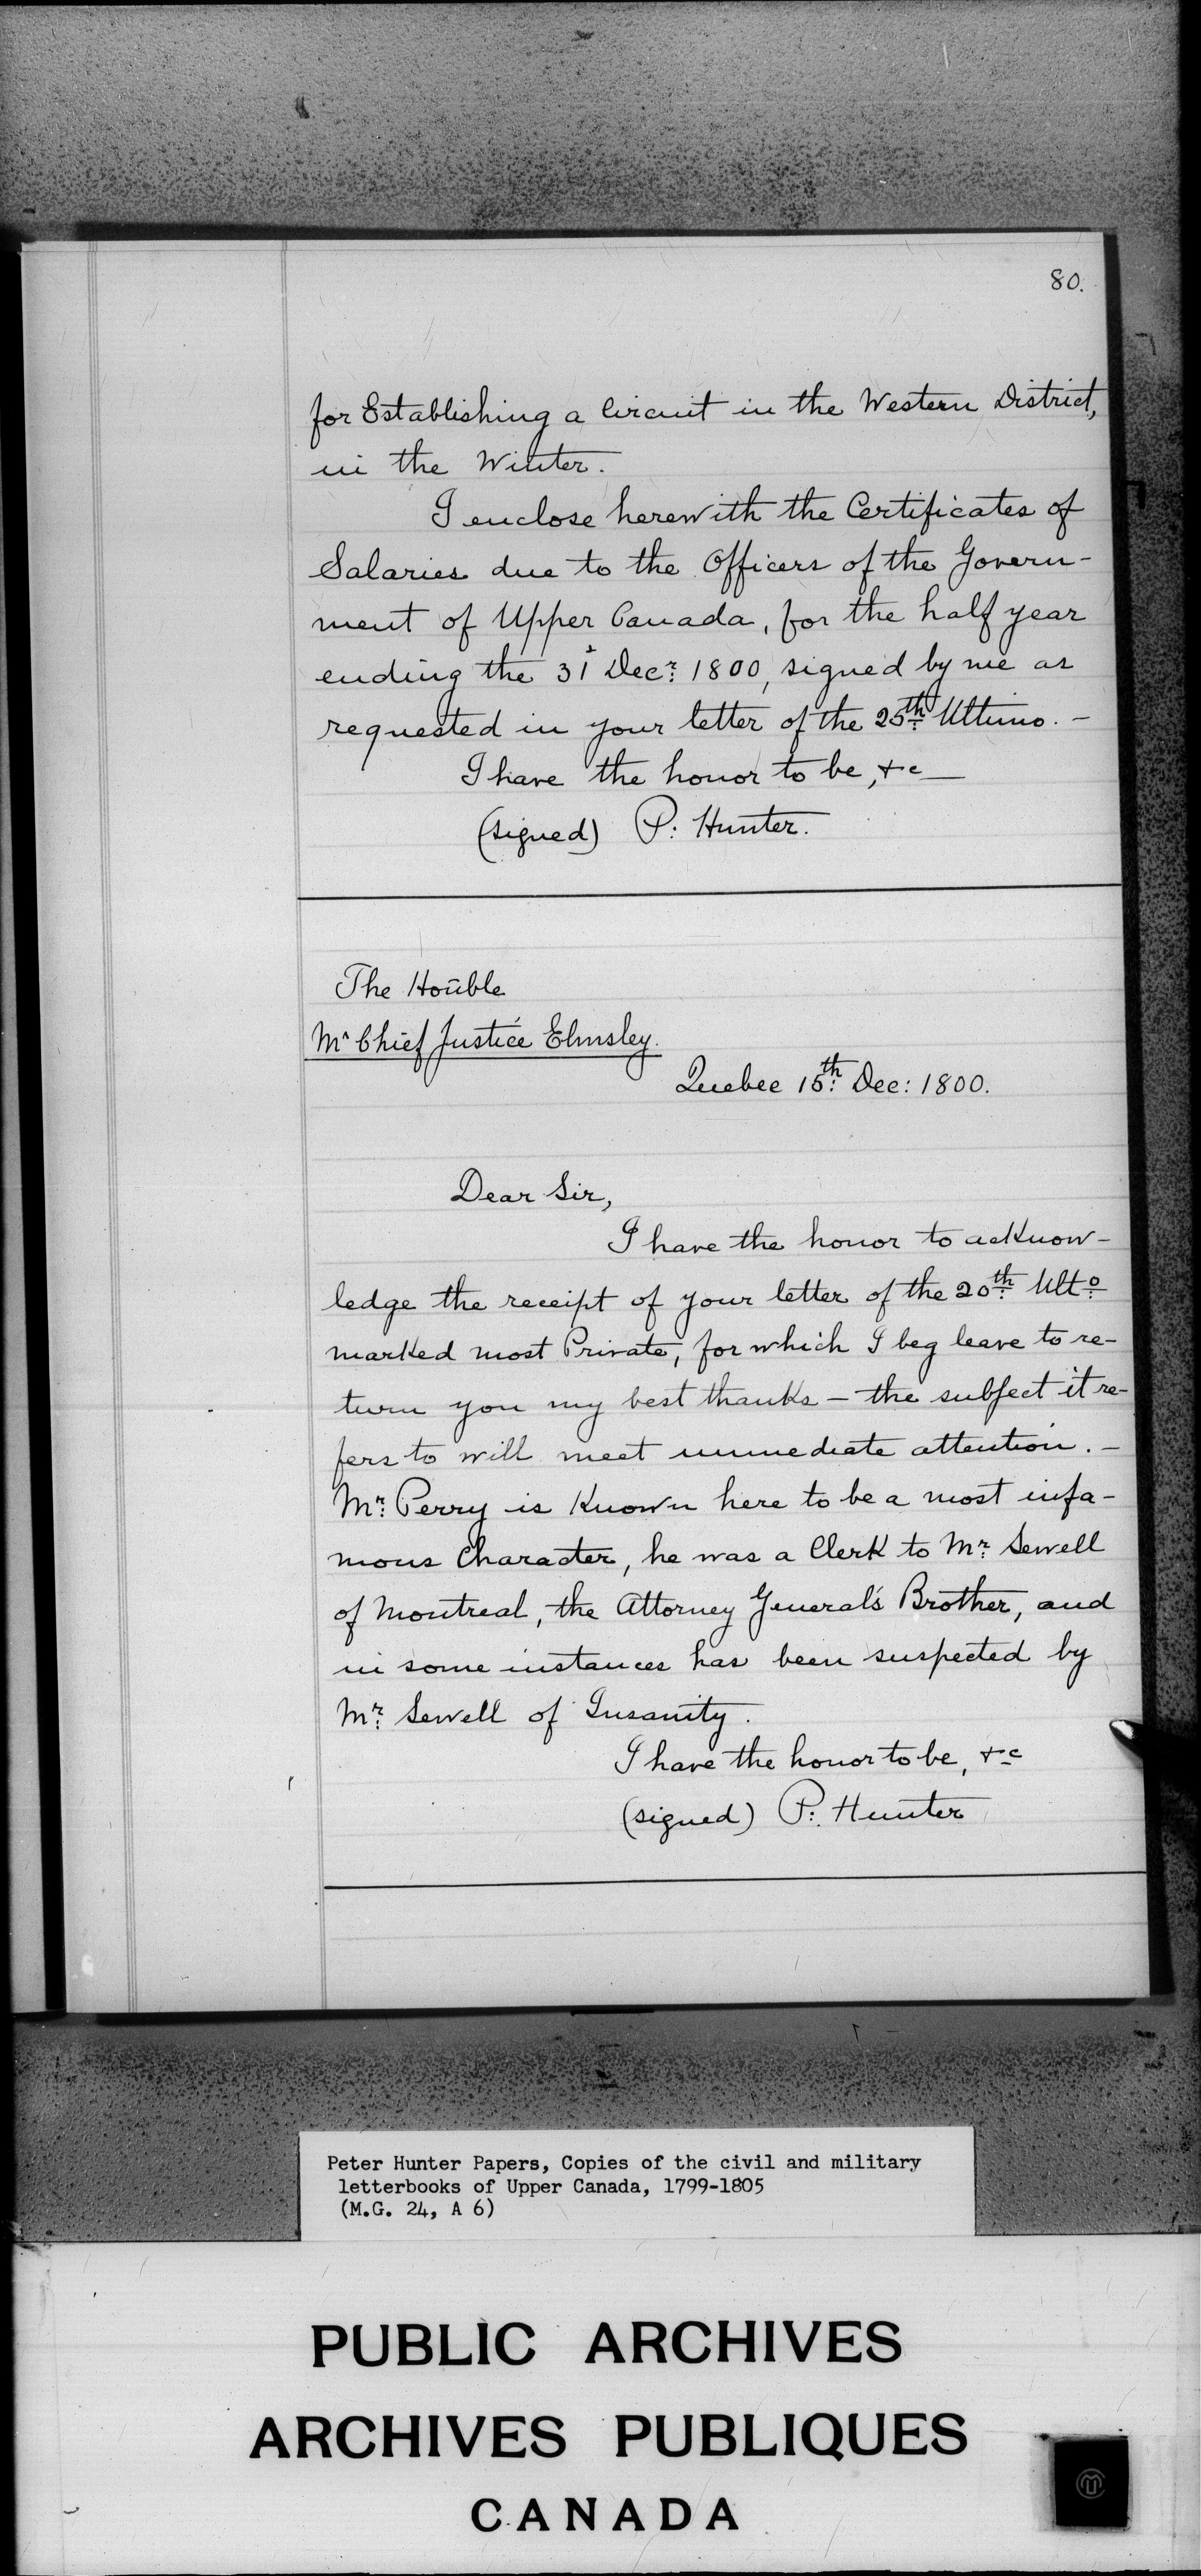 80.
for Establishing a Circuit in the Western District,
in the Winter.
I enclose herewith the Certificates of
Salaries due to the Officers of the Govern-
ment of Upper Canada, for the half year
ending the 31st Decr: 1800, signed by me as
requested in your letter of the 25th: Ultimo. -
I have the honor to be, &c —
(signed) P: Hunter.
The Honble
Mr Chief Justice Elmsley.
Quebec 15th: Dec: 1800.
Dear Sir,
I have the honor to acknow-
ledge the receipt of your letter of the 20th: Ulto:
marked most Private, for which I beg leave to re-
turn you my best thanks — the subject it re-
fers to will meet immediate attention. -
Mr: Perry is Known here to be a most infa-
mous Character, he was a Clerk to Mr: Sewell
of Montreal, the Attorney General's Brother, and
in some instances has been suspected by
Mr: Sewell of Insanity.
I have the honor to be, &c
(signed) P: Hunter
Peter Hunter Papers, Copies of the civil and military
letterbooks of Upper Canada, 1799-1805
(M.G. 24, A 6)
PUBLIC ARCHIVES
ARCHIVES PUBLIQUES
CANADA